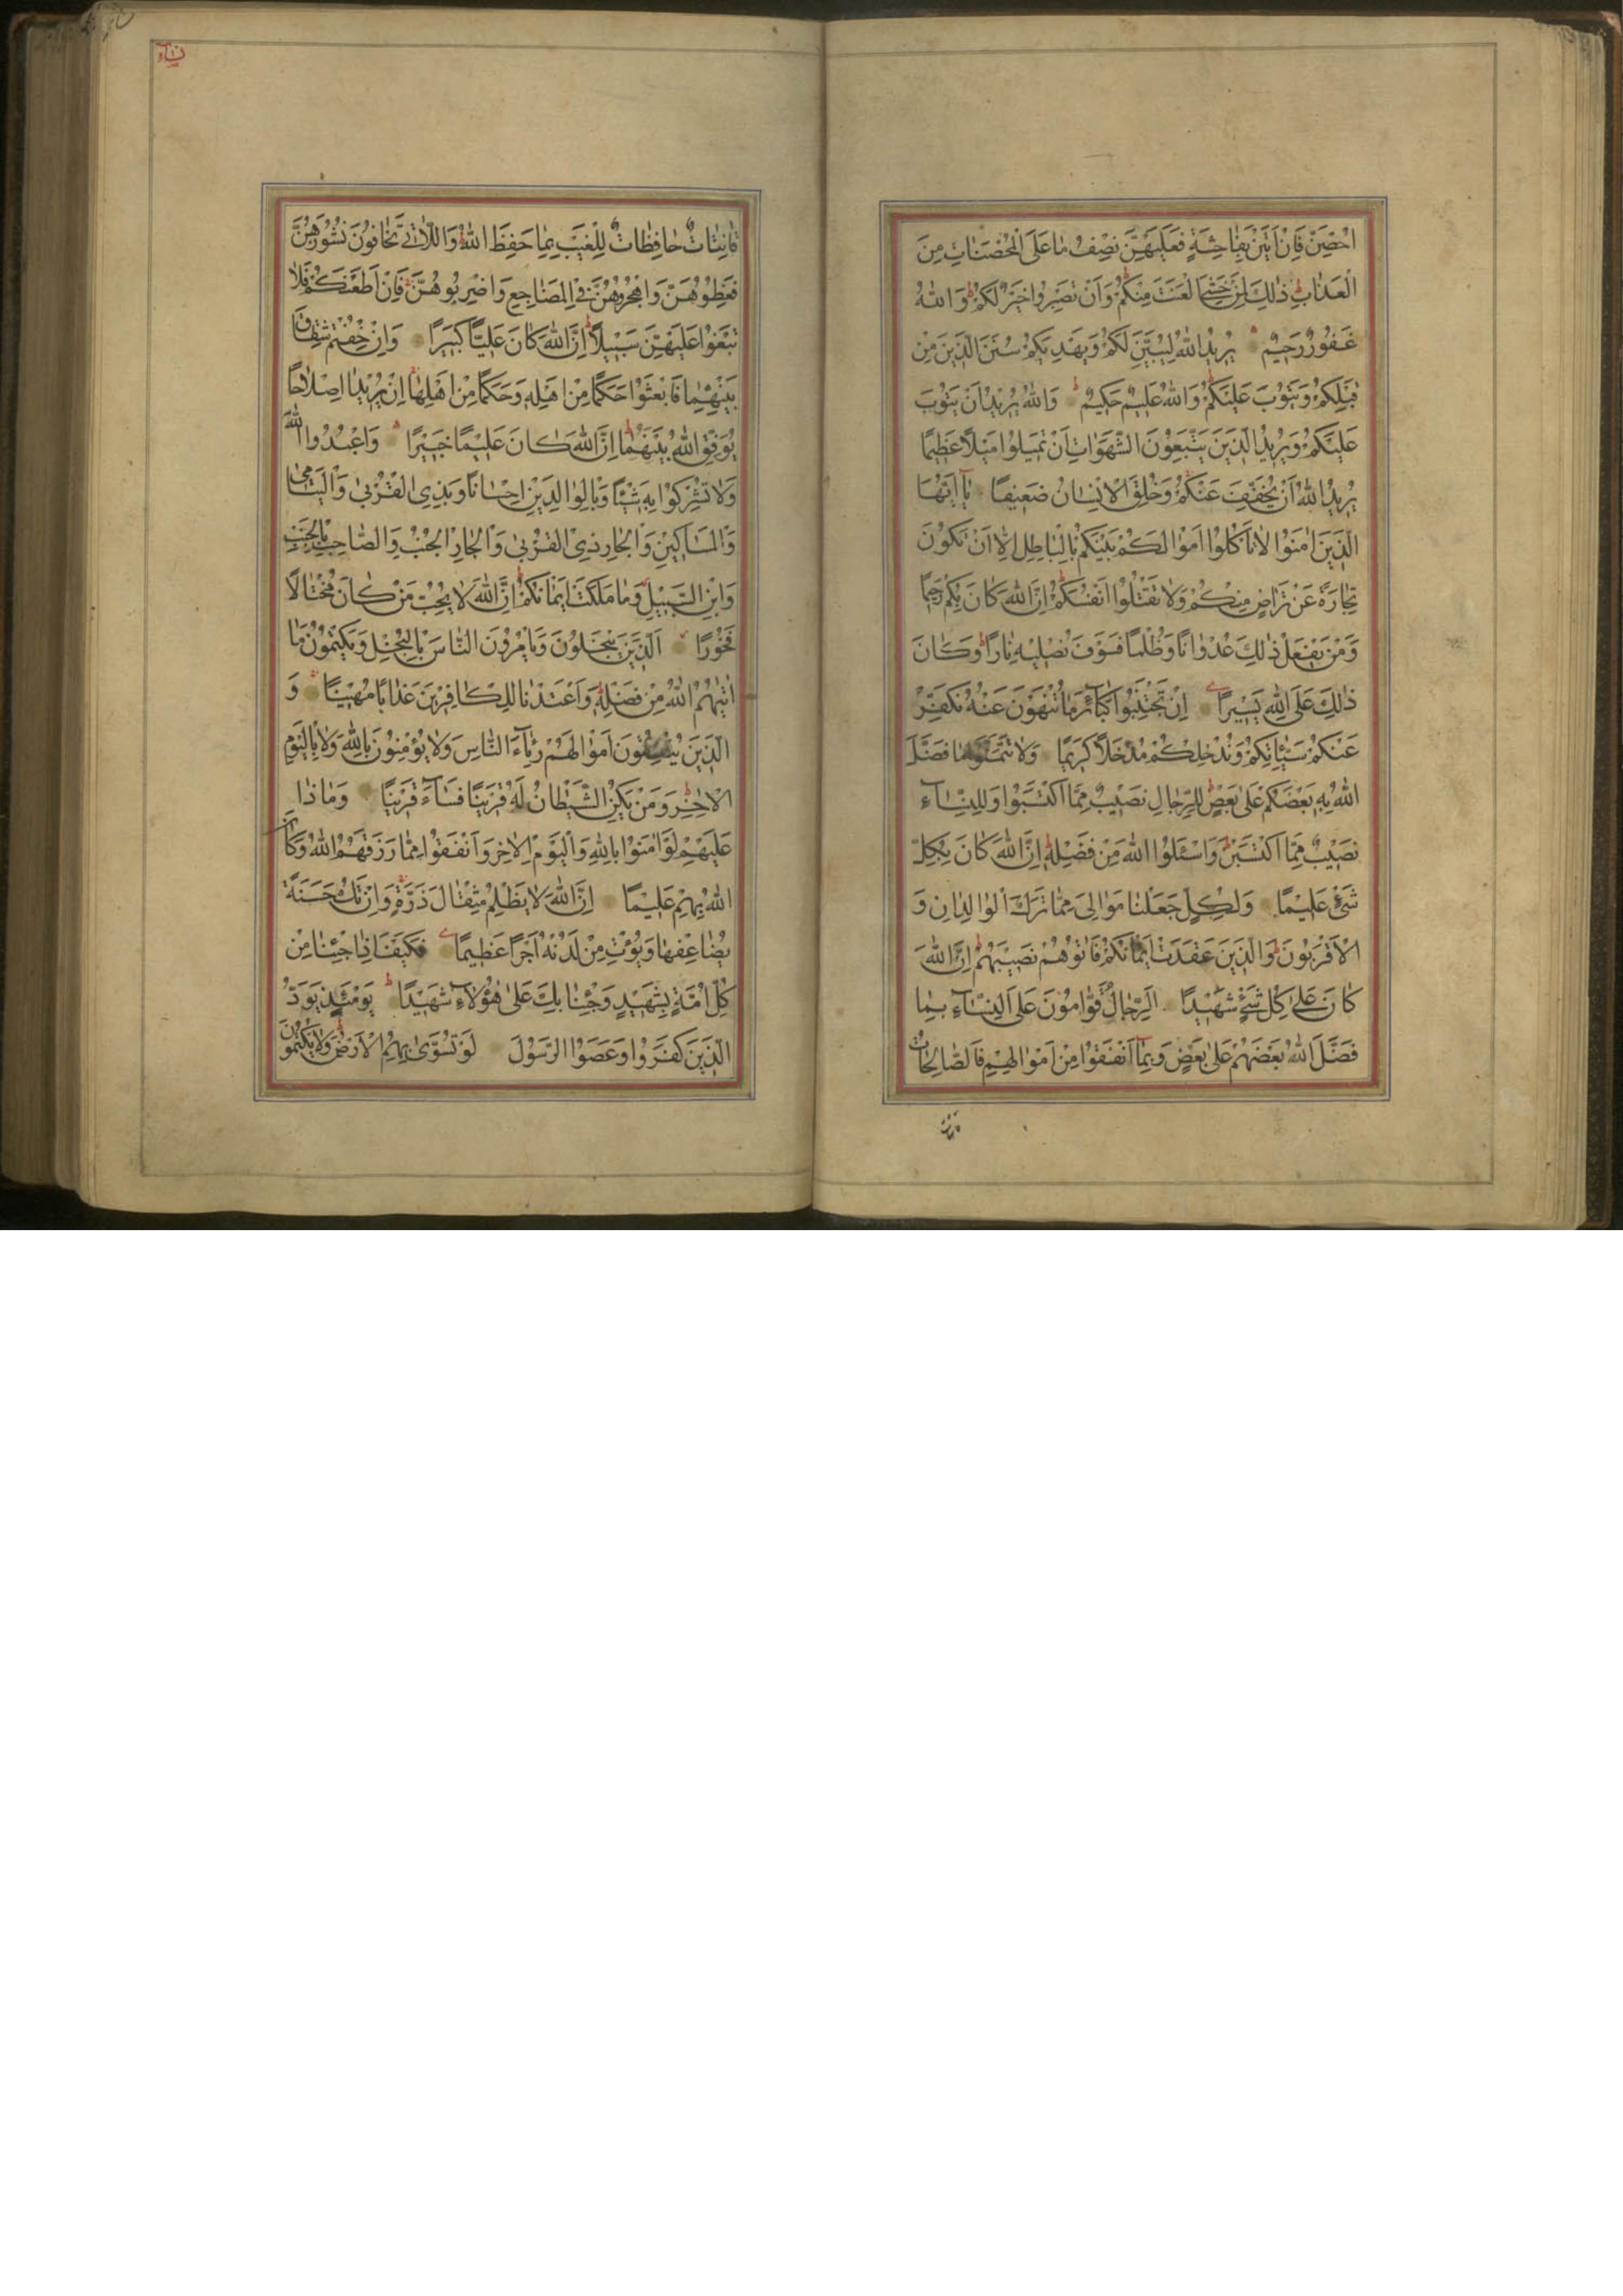 اُحْصِنَّ فَاِنْ اَتَيْنَ بِفَاحِشَةٍ فَعَلَيْهِنَّ نِصْفُ مَا عَلَى الْمُحْصَنَاتِ مِنَ
الْعَذَابِ ذٰلِكَ لِمَنْ خَشِىَ الْعَنَتَ مِنْكُمْ وَاَنْ تَصْبِرُوا خَيْرٌ لَكُمْ وَاللّٰهُ
غَفُورٌ رَحِيمٌ يُرِيدُ اللّٰهُ لِيُبَيِّنَ لَكُمْ وَيَهْدِيَكُمْ سُنَنَ الَّذِينَ مِنْ
قَبْلِكُمْ وَيَتُوبَ عَلَيْكُمْ وَاللّٰهُ عَلِيمٌ حَكِيمٌ وَاللّٰهُ يُرِيدُ اَنْ يَتُوبَ
عَلَيْكُمْ وَيُرِيدُ الَّذِينَ يَتَّبِعُونَ الشَّهَوَاتِ اَنْ تَمِيلُوا مَيْلًا عَظِيمًا
يُرِيدُ اللّٰهُ اَنْ يُخَفِّفَ عَنْكُمْ وَخُلِقَ الْاِنْسَانُ ضَعِيفًا يَآ اَيُّهَا
الَّذِينَ اٰمَنُوا لَا تَاْكُلُوا اَمْوَالَكُمْ بَيْنَكُمْ بِالْبَاطِلِ اِلَّا اَنْ تَكُونَ
تِجَارَةً عَنْ تَرَاضٍ مِنْكُمْ وَلَا تَقْتُلُوا اَنْفُسَكُمْ اِنَّ اللّٰهَ كَانَ بِكُمْ رَحِيمًا
وَمَنْ يَفْعَلْ ذٰلِكَ عُدْوَانًا وَظُلْمًا فَسَوْفَ نُصْلِيهِ نَارًا وَكَانَ
ذٰلِكَ عَلَى اللّٰهِ يَسِيرًا اِنْ تَجْتَنِبُوا كَبَآئِرَ مَا تُنْهَوْنَ عَنْهُ نُكَفِّرْ
عَنْكُمْ سَيِّئَاتِكُمْ وَنُدْخِلْكُمْ مُدْخَلًا كَرِيمًا وَلَا تَتَمَنَّوْا مَا فَضَّلَ
اللّٰهُ بِهِ بَعْضَكُمْ عَلٰى بَعْضٍ لِلرِّجَالِ نَصِيبٌ مِمَّا اكْتَسَبُوا وَلِلنِّسَآءِ
نَصِيبٌ مِمَّا اكْتَسَبْنَ وَاسْئَلُوا اللّٰهَ مِنْ فَضْلِهِ اِنَّ اللّٰهَ كَانَ بِكُلِّ
شَىْءٍ عَلِيمًا وَلِكُلٍّ جَعَلْنَا مَوَالِىَ مِمَّا تَرَكَ الْوَالِدَانِ وَ
الْاَقْرَبُونَ وَالَّذِينَ عَقَدَتْ اَيْمَانُكُمْ فَاٰتُوهُمْ نَصِيبَهُمْ اِنَّ اللّٰهَ
كَانَ عَلٰى كُلِّ شَىْءٍ شَهِيدًا اَلرِّجَالُ قَوَّامُونَ عَلَى النِّسَآءِ بِمَا
فَضَّلَ اللّٰهُ بَعْضَهُمْ عَلٰى بَعْضٍ وَبِمَآ اَنْفَقُوا مِنْ اَمْوَالِهِمْ فَالصَّالِحَاتُ
قَانِتَاتٌ
قَانِتَاتٌ حَافِظَاتٌ لِلْغَيْبِ بِمَا حَفِظَ اللّٰهُ وَاللَّاتِى تَخَافُونَ نُشُوزَهُنَّ
فَعِظُوهُنَّ وَاهْجُرُوهُنَّ فِى الْمَضَاجِعِ وَاضْرِبُوهُنَّ فَاِنْ اَطَعْنَكُمْ فَلَا
تَبْغُوا عَلَيْهِنَّ سَبِيلًا اِنَّ اللّٰهَ كَانَ عَلِيًّا كَبِيرًا وَاِنْ خِفْتُمْ شِقَاقَ
بَيْنِهِمَا فَابْعَثُوا حَكَمًا مِنْ اَهْلِهِ وَحَكَمًا مِنْ اَهْلِهَا اِنْ يُرِيدَا اِصْلَاحًا
يُوَفِّقِ اللّٰهُ بَيْنَهُمَا اِنَّ اللّٰهَ كَانَ عَلِيمًا خَبِيرًا وَاعْبُدُوا اللّٰهَ
وَلَا تُشْرِكُوا بِهِ شَيْئًا وَبِالْوَالِدَيْنِ اِحْسَانًا وَبِذِى الْقُرْبٰى وَالْيَتَامٰى
وَالْمَسَاكِينِ وَالْجَارِ ذِى الْقُرْبٰى وَالْجَارِ الْجُنُبِ وَالصَّاحِبِ بِالْجَنْبِ
وَابْنِ السَّبِيلِ وَمَا مَلَكَتْ اَيْمَانُكُمْ اِنَّ اللّٰهَ لَا يُحِبُّ مَنْ كَانَ مُخْتَالًا
فَخُورًا اَلَّذِينَ يَبْخَلُونَ وَيَاْمُرُونَ النَّاسَ بِالْبُخْلِ وَيَكْتُمُونَ مَا
اٰتٰيهُمُ اللّٰهُ مِنْ فَضْلِهِ وَاَعْتَدْنَا لِلْكَافِرِينَ عَذَابًا مُهِينًا وَ
الَّذِينَ يُنْفِقُونَ اَمْوَالَهُمْ رِئَآءَ النَّاسِ وَلَا يُؤْمِنُونَ بِاللّٰهِ وَلَا بِالْيَوْمِ
الْاٰخِرِ وَمَنْ يَكُنِ الشَّيْطَانُ لَهُ قَرِينًا فَسَآءَ قَرِينًا وَمَاذَا
عَلَيْهِمْ لَوْ اٰمَنُوا بِاللّٰهِ وَالْيَوْمِ الْاٰخِرِ وَاَنْفَقُوا مِمَّا رَزَقَهُمُ اللّٰهُ وَكَانَ
اللّٰهُ بِهِمْ عَلِيمًا اِنَّ اللّٰهَ لَا يَظْلِمُ مِثْقَالَ ذَرَّةٍ وَاِنْ تَكُ حَسَنَةً
يُضَاعِفْهَا وَيُؤْتِ مِنْ لَدُنْهُ اَجْرًا عَظِيمًا فَكَيْفَ اِذَا جِئْنَا مِنْ
كُلِّ اُمَّةٍ بِشَهِيدٍ وَجِئْنَا بِكَ عَلٰى هٰؤُلَآءِ شَهِيدًا يَوْمَئِذٍ يَوَدُّ
الَّذِينَ كَفَرُوا وَعَصَوُا الرَّسُولَ لَوْ تُسَوّٰى بِهِمُ الْاَرْضُ وَلَا يَكْتُمُونَ